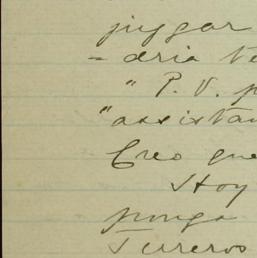 juzgar
= dria te
" P. V. p
"assistan
Creo que
Hoy
ponga
Terreros